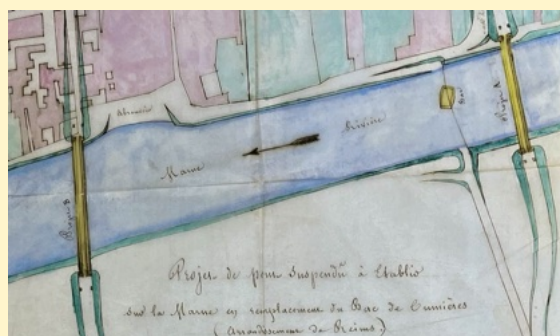 Abreuvoir
Marne
Rivière
Bac
Projet A
Projet B
Projet de pont suspendu à Etablir
sur la Marne en remplacement du Bac de Cumières
(Arrondissement de Reims)